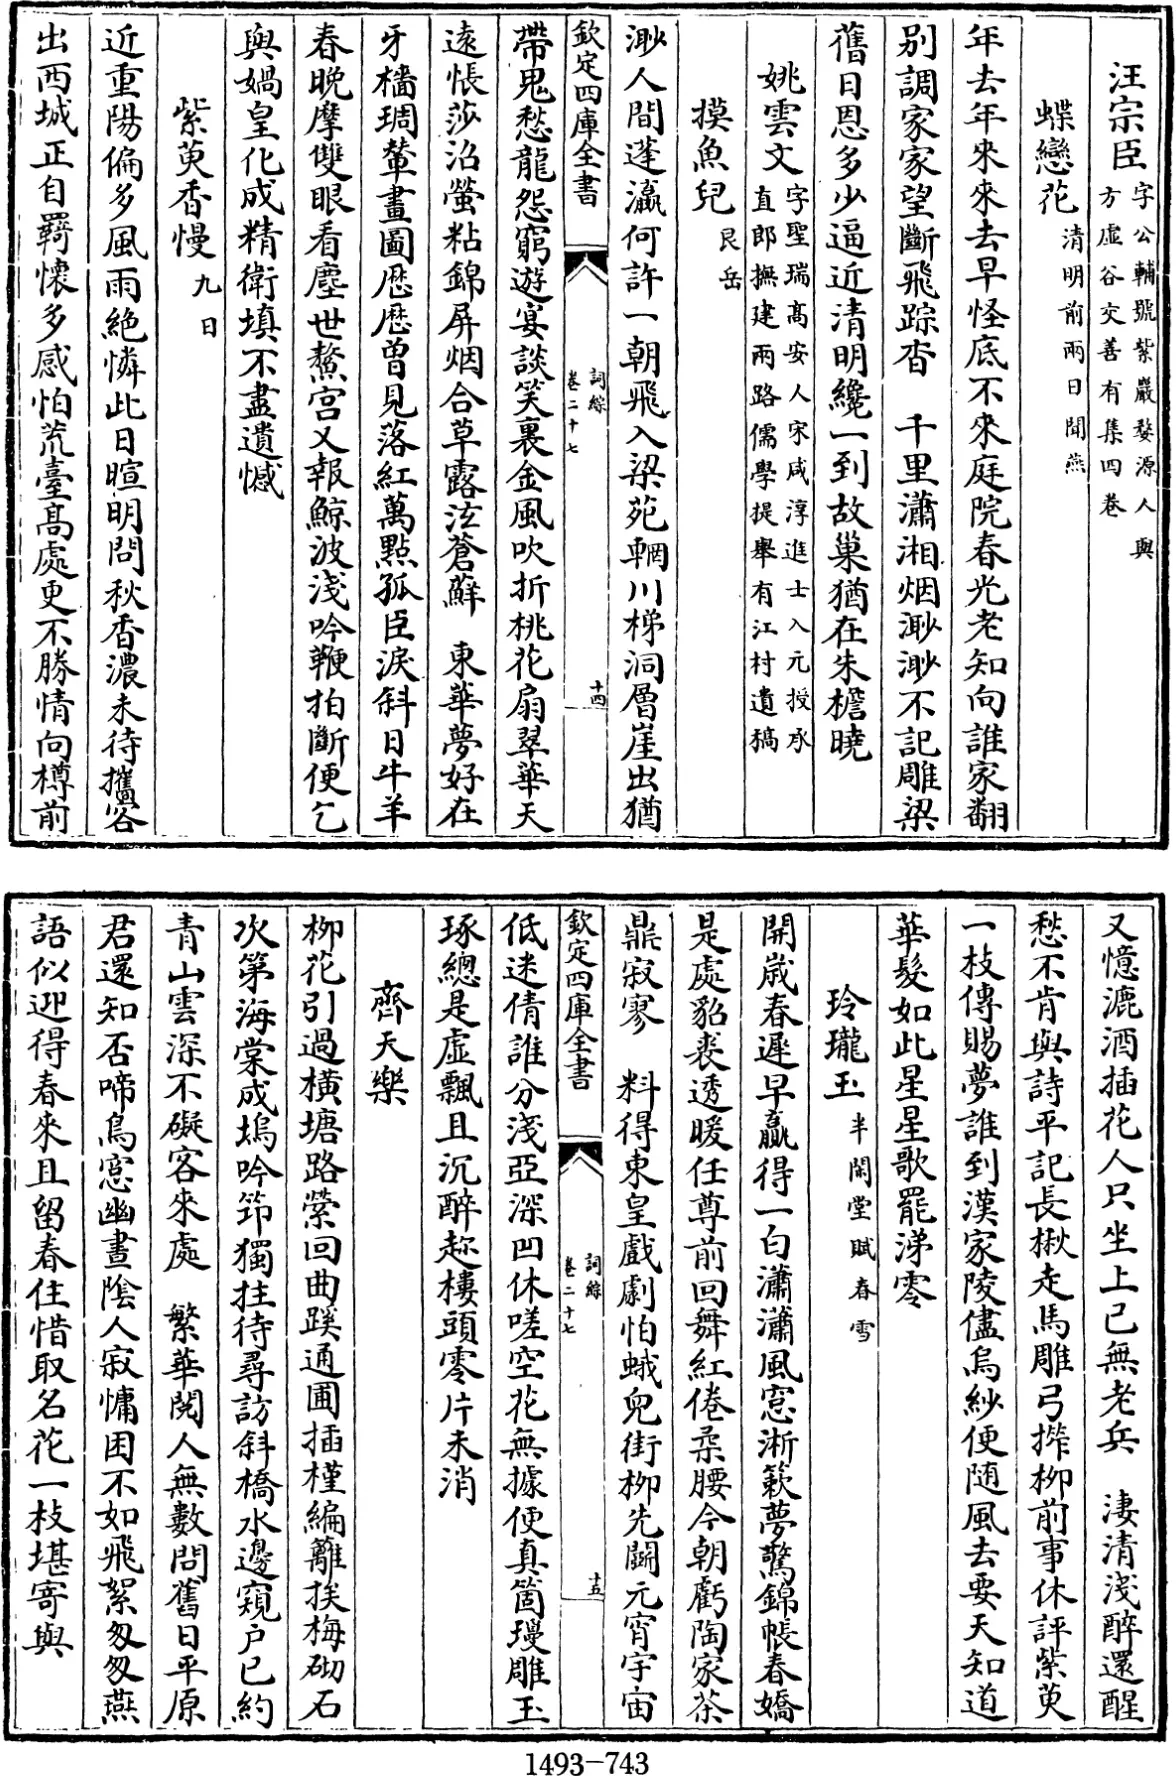 汪宗臣字公輔號紫巖婺源人與方虛谷交善有集四卷
蝶戀花清明前兩日聞燕
年去年來來去早怪底不來庭院春光老知向誰家翻
别調家家望斷飛踪杳　千里瀟湘烟渺渺不記雕梁
舊日恩多少逼近清明纔一到故巢猶在朱檐曉
姚雲文字聖瑞髙安人宋咸淳進士入元授承直郎撫建兩路儒學提舉有江村遺稿
摸魚兒艮岳
渺人間蓬瀛何許一朝飛入梁苑輞川梯洞層崖出猶
欽定四庫全書
詞綜
卷二十七
十四
帶鬼愁龍怨窮遊宴談笑裏金風吹折桃花扇翠華天
逺悵莎沼螢粘錦屏烟合草露泫蒼蘚　東華夢好在
牙檣琱輦畫圖歴歴曽見落紅萬點孤臣淚斜日牛羊
春晩摩雙眼看塵世鰲宫又報鯨波淺吟鞭拍斷便乞
與媧皇化成精衛填不盡遺憾
紫萸香慢九日
近重陽偏多風雨絶憐此日暄明問秋香濃未待攜客
出西城正自羇懷多感怕荒臺髙處更不勝情向樽前
又憶漉酒插花人只坐上已無老兵　淒清淺醉還醒
愁不肯與詩平記長楸走馬雕弓搾柳前事休評紫萸
一枝傳賜夢誰到漢家陵儘烏紗便随風去要天知道
華髮如此星星歌罷涕零
玲瓏玉半閒堂賦春雪
開嵗春遲早贏得一白瀟瀟風窓淅簌夢驚錦帳春嬌
是處貂裘透暖任尊前回舞紅倦柔腰今朝虧陶家茶
鼎寂寥　料得東皇戲劇怕蛾兒街柳先鬬元宵宇宙
欽定四庫全書
詞綜
卷二十七
十五
低迷倩誰分淺亞深凹休嗟空花無據便真箇璦雕玉
琢總是虚飄且沉醉趂樓頭零片未消
齊天樂
柳花引過横塘路縈回曲蹊通圃插槿編籬挨梅砌石
次第海棠成塢吟笻獨拄待尋訪斜橋水邊窺户已約
青山雲深不礙客來處　繁華閲人無數問舊日平原
君還知否啼鳥窓幽晝陰人寂慵困不如飛絮匆匆燕
語似迎得春來且留春住惜取名花一枝堪寄與
1493-743